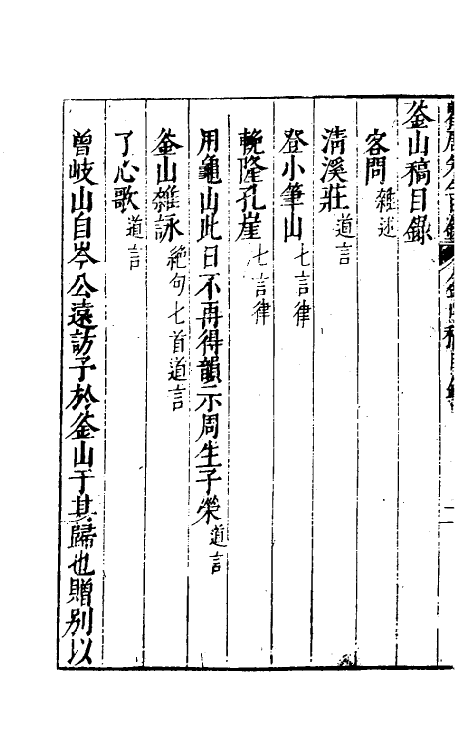 釜山稿目錄
客問 雜述
清溪莊 道言
登小筆山 七言律
輓隆孔崖 七言律
用龜山此日不再得韻示周生子榮 道言
釜山雜詠 絕句七首道言
了心歌 道言
曾岐山自岑公遠訪予於釜山于其歸也贈别以